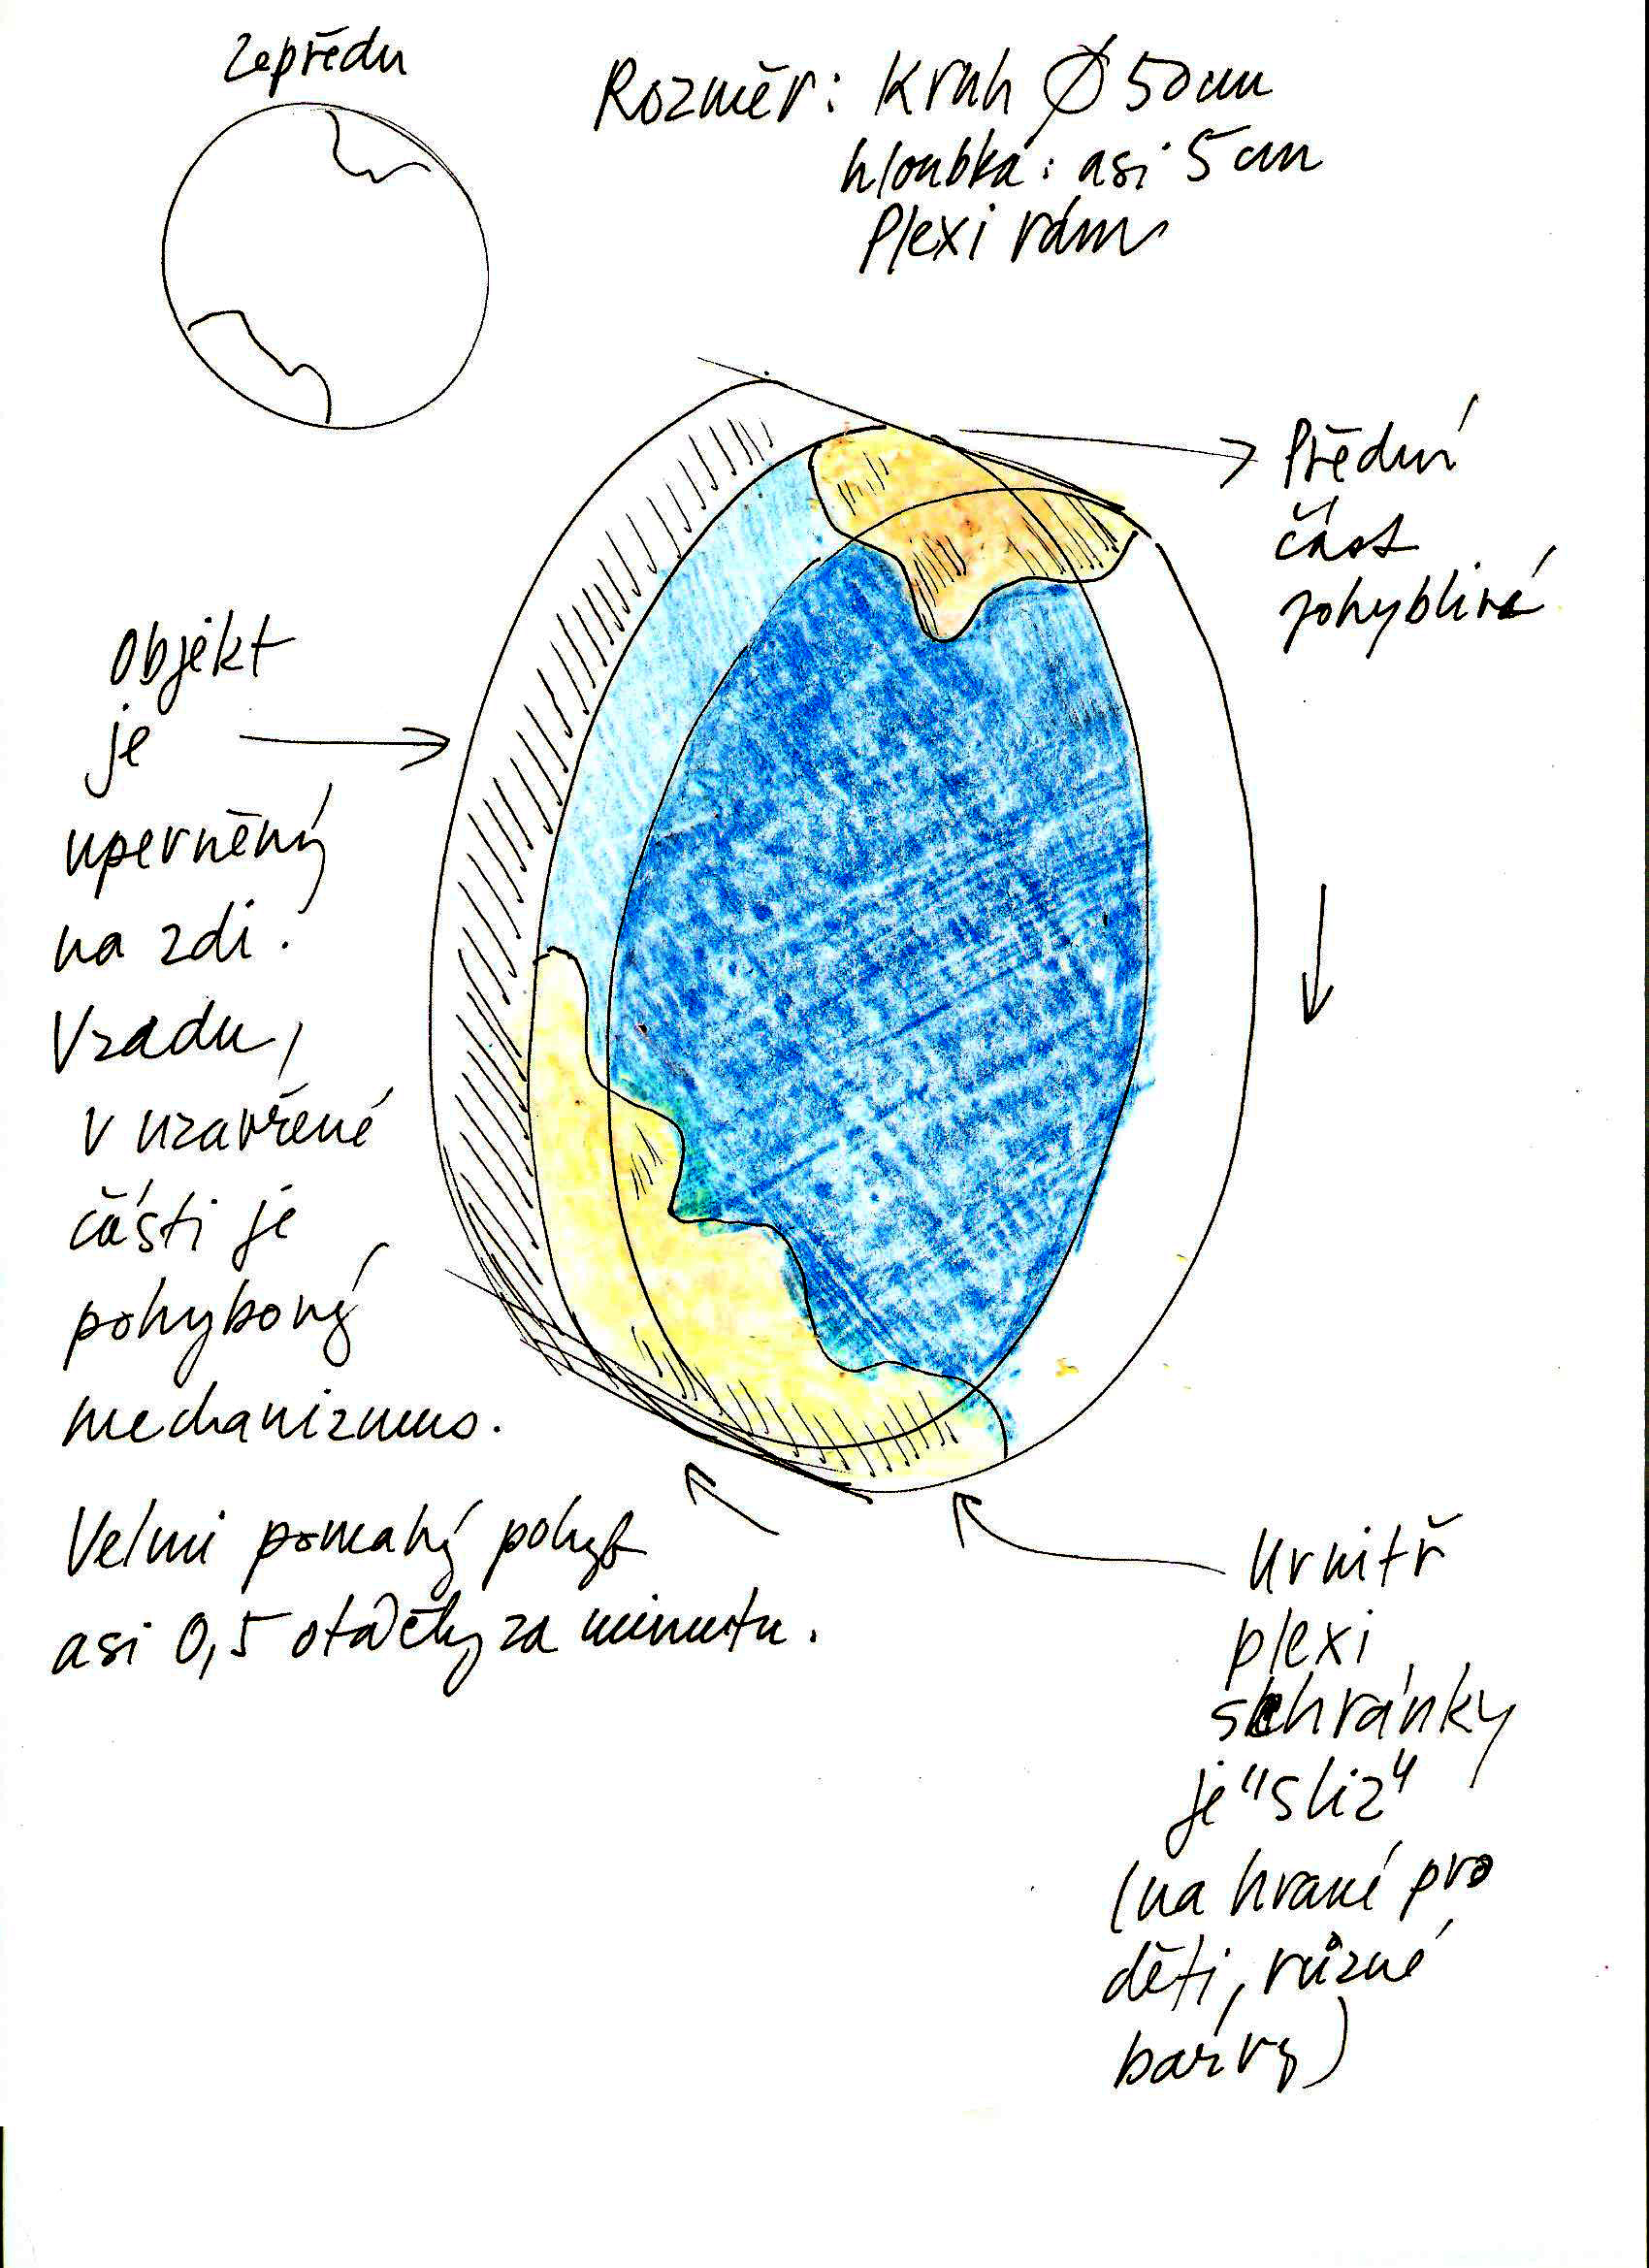 zepředu
Rozměr: Kruh Ø 50cm
hloubka: asi 5 cm
Plexi rám
Přední
část
pohyblivá
Objekt
je
upevněný
na zdi.
Vzadu,
v uzavřené
části je
pohybový
mechanizmus.
Velmi pomalý pohyb
asi 0,5 otáčky za minutu.
Uvnitř
plexi
schránky
je "sliz"
(na hraní pro
děti, různé
barvy)